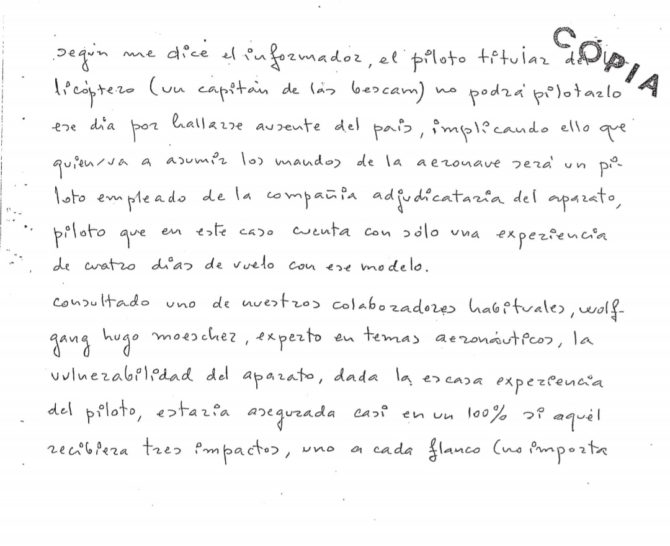 según me dice el informador, el piloto titular del he-
licóptero (un capitán de las bescam) no podrá pilotarlo
ese día por hallarse ausente del país, implicando ello que
quien/va a asumir los mandos de la aeronave será un pi-
loto empleado de la compañía adjudicataria del aparato,
piloto que en este caso cuenta con sólo una experiencia
de cuatro días de vuelo con ese modelo.
consultado uno de nuestros colaboradores habituales, wolf-
gang hugo moescher, experto en temas aeronáuticos, la
vulnerabilidad del aparato, dada la escasa experiencia
del piloto, estaría asegurada casi en un 100% si aquél
recibiera tres impactos, uno a cada flanco (no importa
COPIA